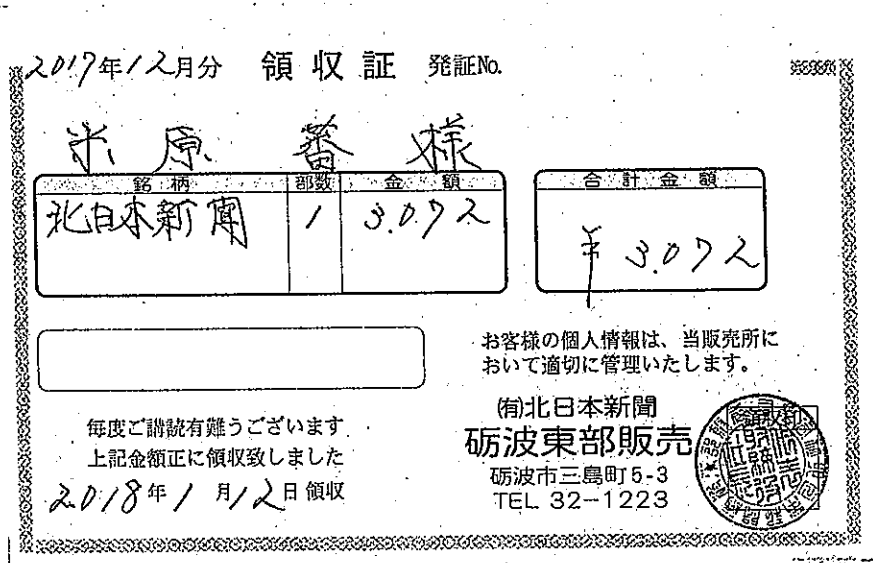 2017年12月分 領収証 発証No.
米原 蕃 様
銘柄 部数 金額 合計金額
北日本新聞 1 3.072
¥3.072
お客様の個人情報は、当販売所に
おいて適切に管理いたします。
毎度ご購読有難うございます
上記金額正に領収致しました
2018年1月12日領収
(有)北日本新聞
砺波東部販売
砺波市三島町5-3
TEL 32-1223
領収印